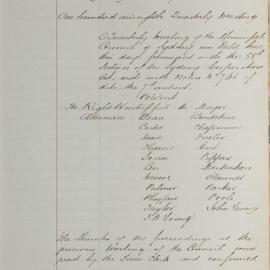 One hundred and eighth Quarterly Meeting
A Quarterly Meeting of the Municipal
Council of Sydney was held here
this day pursuant with the 55th
Section of the Sydney Corporation
Act, and with Notice No 765 of
date the 7th instant.
Present
The Right Worshipful the Mayor
Aldermen Dean
Carter Chapman
Fowler
Harris Hart
Jones
Lee
Palmer Parker
Playfair Poole
Taylor John Young
J. D. Young
The Minutes of the proceedings at the
previous Meeting of the Council were
read by the Town Clerk and confirmed